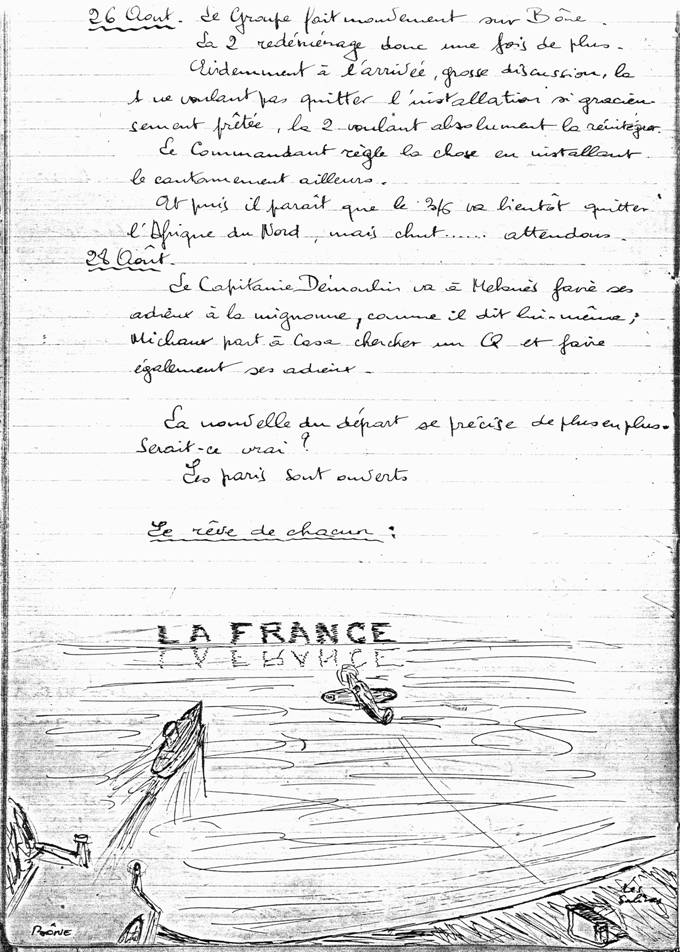 26 Aout. Le Groupe fait mouvement sur Bône.
La 2 redéménage donc une fois de plus.
Evidemment à l'arrivée, grosse discussion, la
1 ne voulant pas quitter l'installation si gracieu-
sement prêtée, la 2 voulant absolument la réintégrer.
Le Commandant règle la chose en installant
le cantonnement ailleurs.
Et puis il paraît que le 3/6 va bientôt quitter
l'Afrique du Nord, mais chut...... attendons.
28 Août.
Le Capitaine Démoulin va à Meknès faire ses
adieux à la mignonne, comme il dit lui-même;
Michaux part à Casa chercher un CQ et faire
également ses adieux.
La nouvelle du départ se précise de plus en plus.
Serait-ce vrai ?
Les paris sont ouverts
Le rêve de chacun :
LA FRANCE
LA FRANCE
BÔNE
Les
Salines